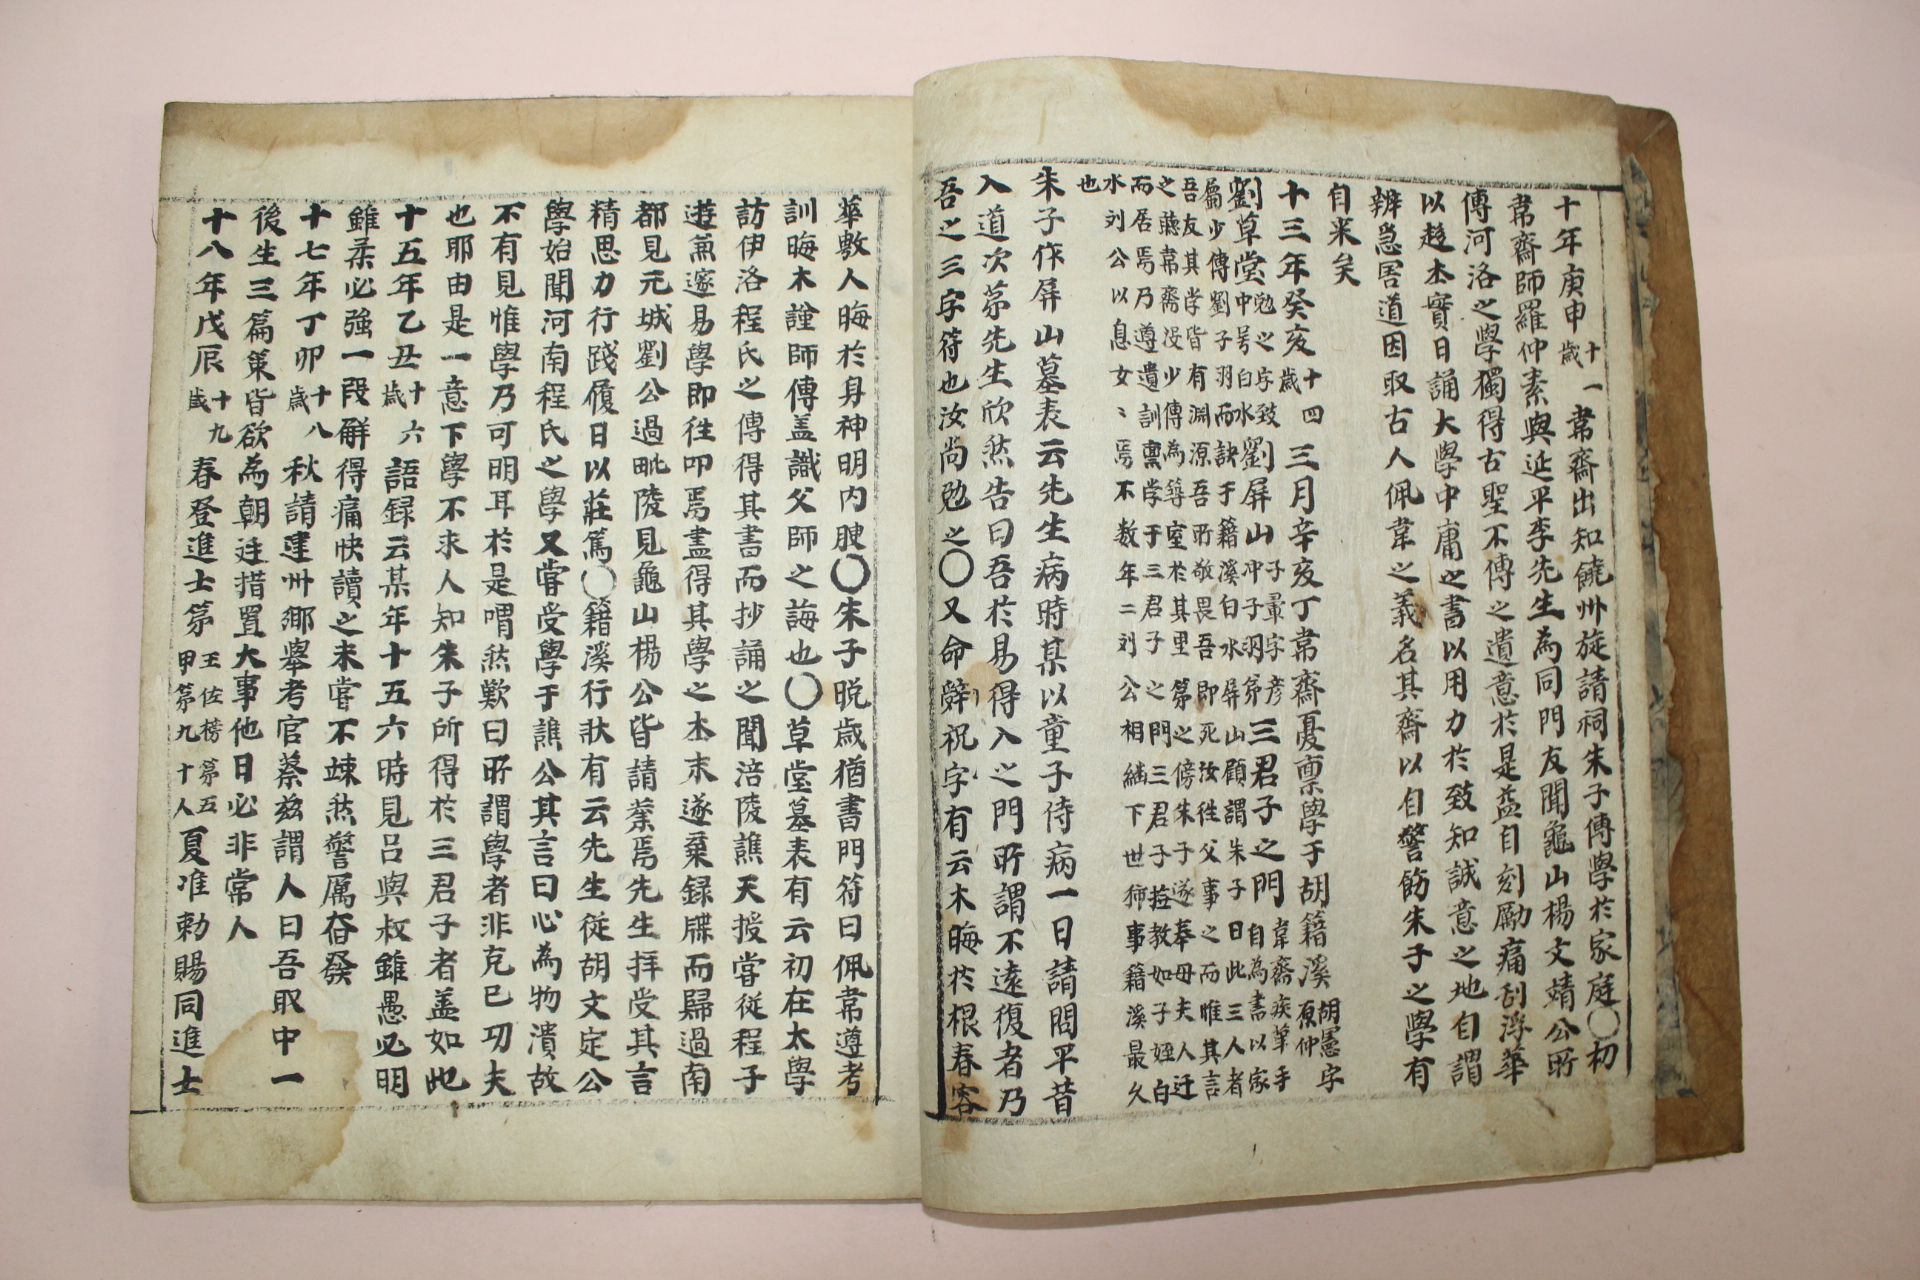 十年庚申十一歲韋齋出知饒州旋請祠朱子傳學於家庭○初
韋齋師羅仲素與延平李先生為同門友聞龜山楊文靖公所
傳河洛之學獨得古聖不傳之遺意於是益自刻勵痛刮浮華
以趍本實日誦大學中庸之書以用力於致知誠意之地自謂
辨急害道因取古人佩韋之義名其齋以自警飭朱子之學有
自來矣
十三年癸亥十四歲三月辛亥丁韋齋憂稟學于胡籍溪胡憲字原仲
劉草堂勉之字致中号白水劉屏山子翬字彥冲子羽弟三君子之門韋齋疾革手自為書以家
屬少傅劉子羽而訣于籍溪白水屏山顧謂朱子曰此三人者
吾友其学皆有淵源吾所敬畏吾即死汝往父事之而惟其言
之聽韋齋没少傅為築室於其里第之傍朱子遂奉母夫人迁
而居焉乃遵遺訓稟学于三君子之門三君子撫教如子姪白
水刘公以息女〻焉不数年二刘公相継下世獨事籍溪最久
也
朱子作屏山墓表云先生病時某以童子侍病一日請問平昔
入道次苐先生欣然告曰吾於易得入之門所謂不遠復者乃
吾之三字符也汝尚勉之○又命辭祝字有云木晦於根春容
華敷人晦於身神明内腴○朱子晩歲猶書門符曰佩韋遵考
訓晦木謹師傳盖識父師之誨也○草堂墓表有云初在太學
訪伊洛程氏之傳得其書而抄誦之聞涪陵譙天授嘗従程子
遊兼邃易學即徃叩焉盡得其學之本末遂棄録牒而歸過南
都見元城劉公過毗陵見龜山楊公皆請業焉先生拜受其言
精思力行踐履日以莊篤○籍溪行狀有云先生従胡文定公
學始聞河南程氏之學又嘗受學于譙公其言曰心為物漬故
不有見惟學乃可明耳於是喟然歎曰所謂學者非克己功夫
也耶由是一意下學不求人知朱子所得於三君子者盖如此
十五年乙丑十六歲語録云某年十五六時見呂與叔雖愚必明
雖柔必強一段解得痛快讀之未嘗不竦然警厲奮發
十七年丁卯十八歲秋請建州鄉舉考官蔡玆謂人曰吾取中一
後生三篇策皆欲為朝廷措置大事他日必非常人
十八年戊辰十九歲春登進士第王佐榜第五甲第九十人夏准勅賜同進士